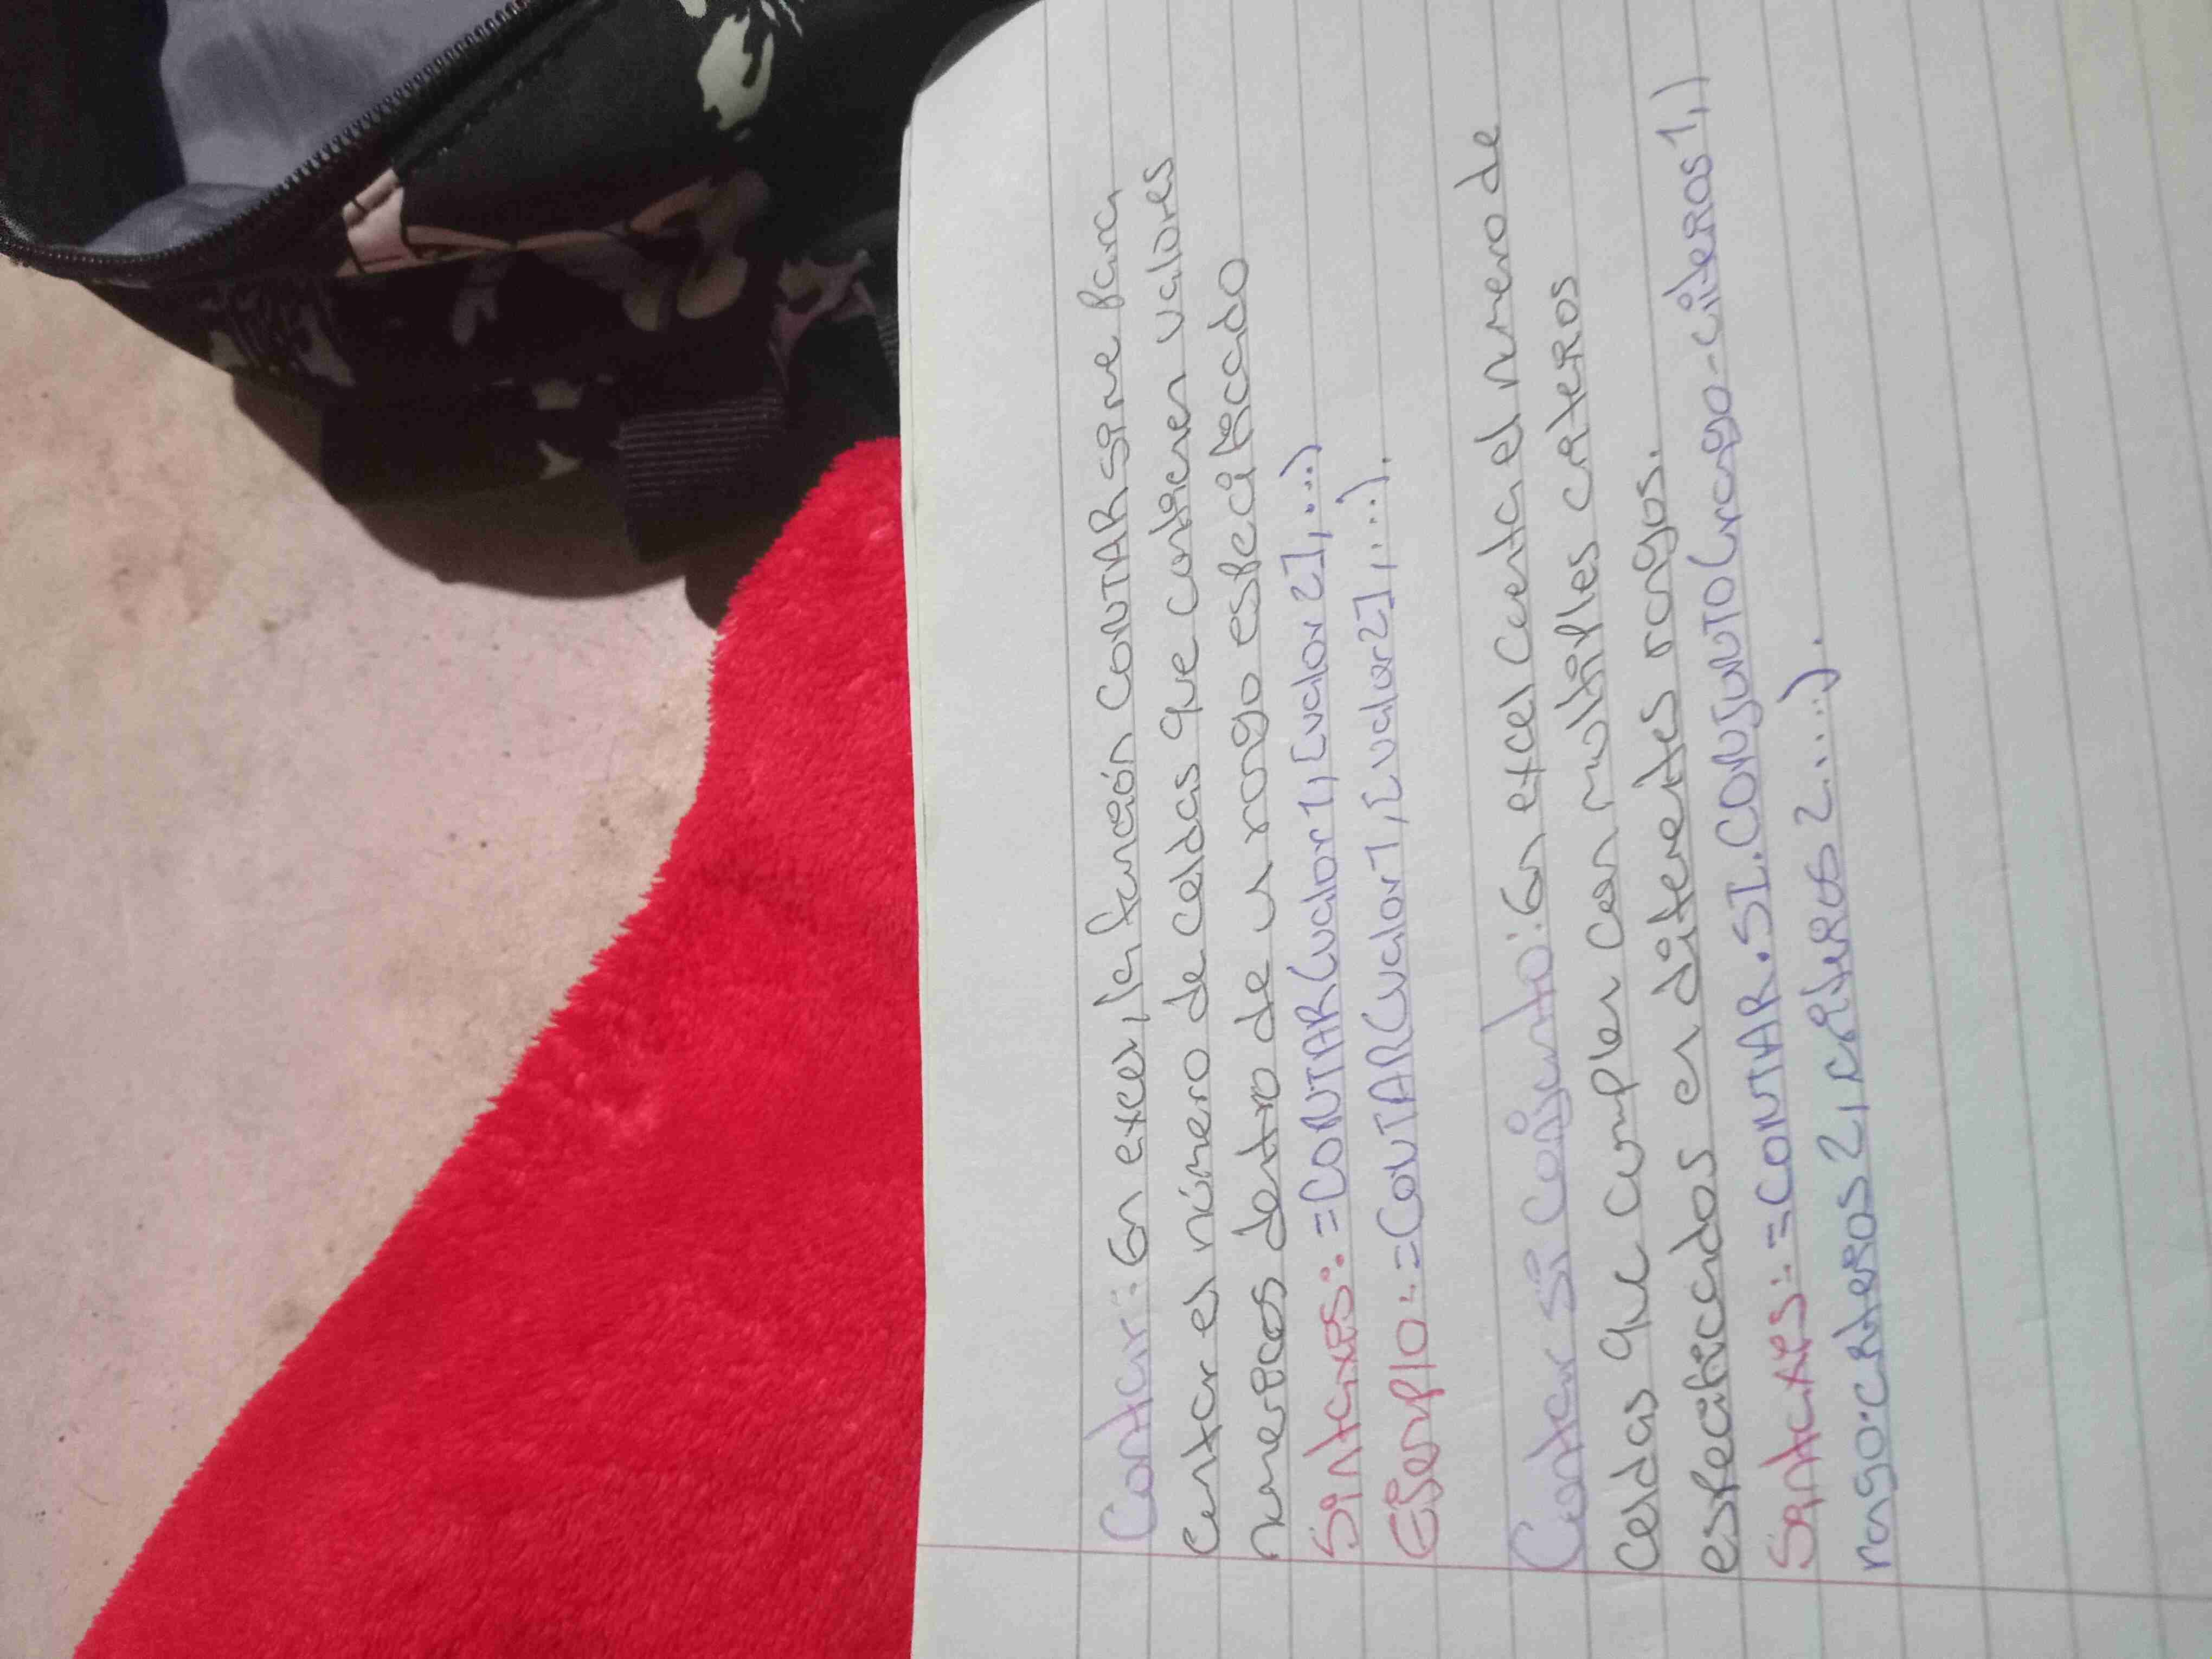 Contar: En excel, la función CONTAR sirve para
contar el número de celdas que contienen valores
numericos dentro de un rango especificado
Sintaxis: =CONTAR(valor1,[valor2],...)
Ejemplo: =CONTAR(valor1,[valor2],...).
Contar si Conjunto: En excel cuenta el numero de
celdas que cumplen con multiples criteros
especificados en diferentes rangos.
Sintaxis: =CONTAR.SI.CONJUNTO(rango-citeros1,)
rango.criteros2, criteros2.....).